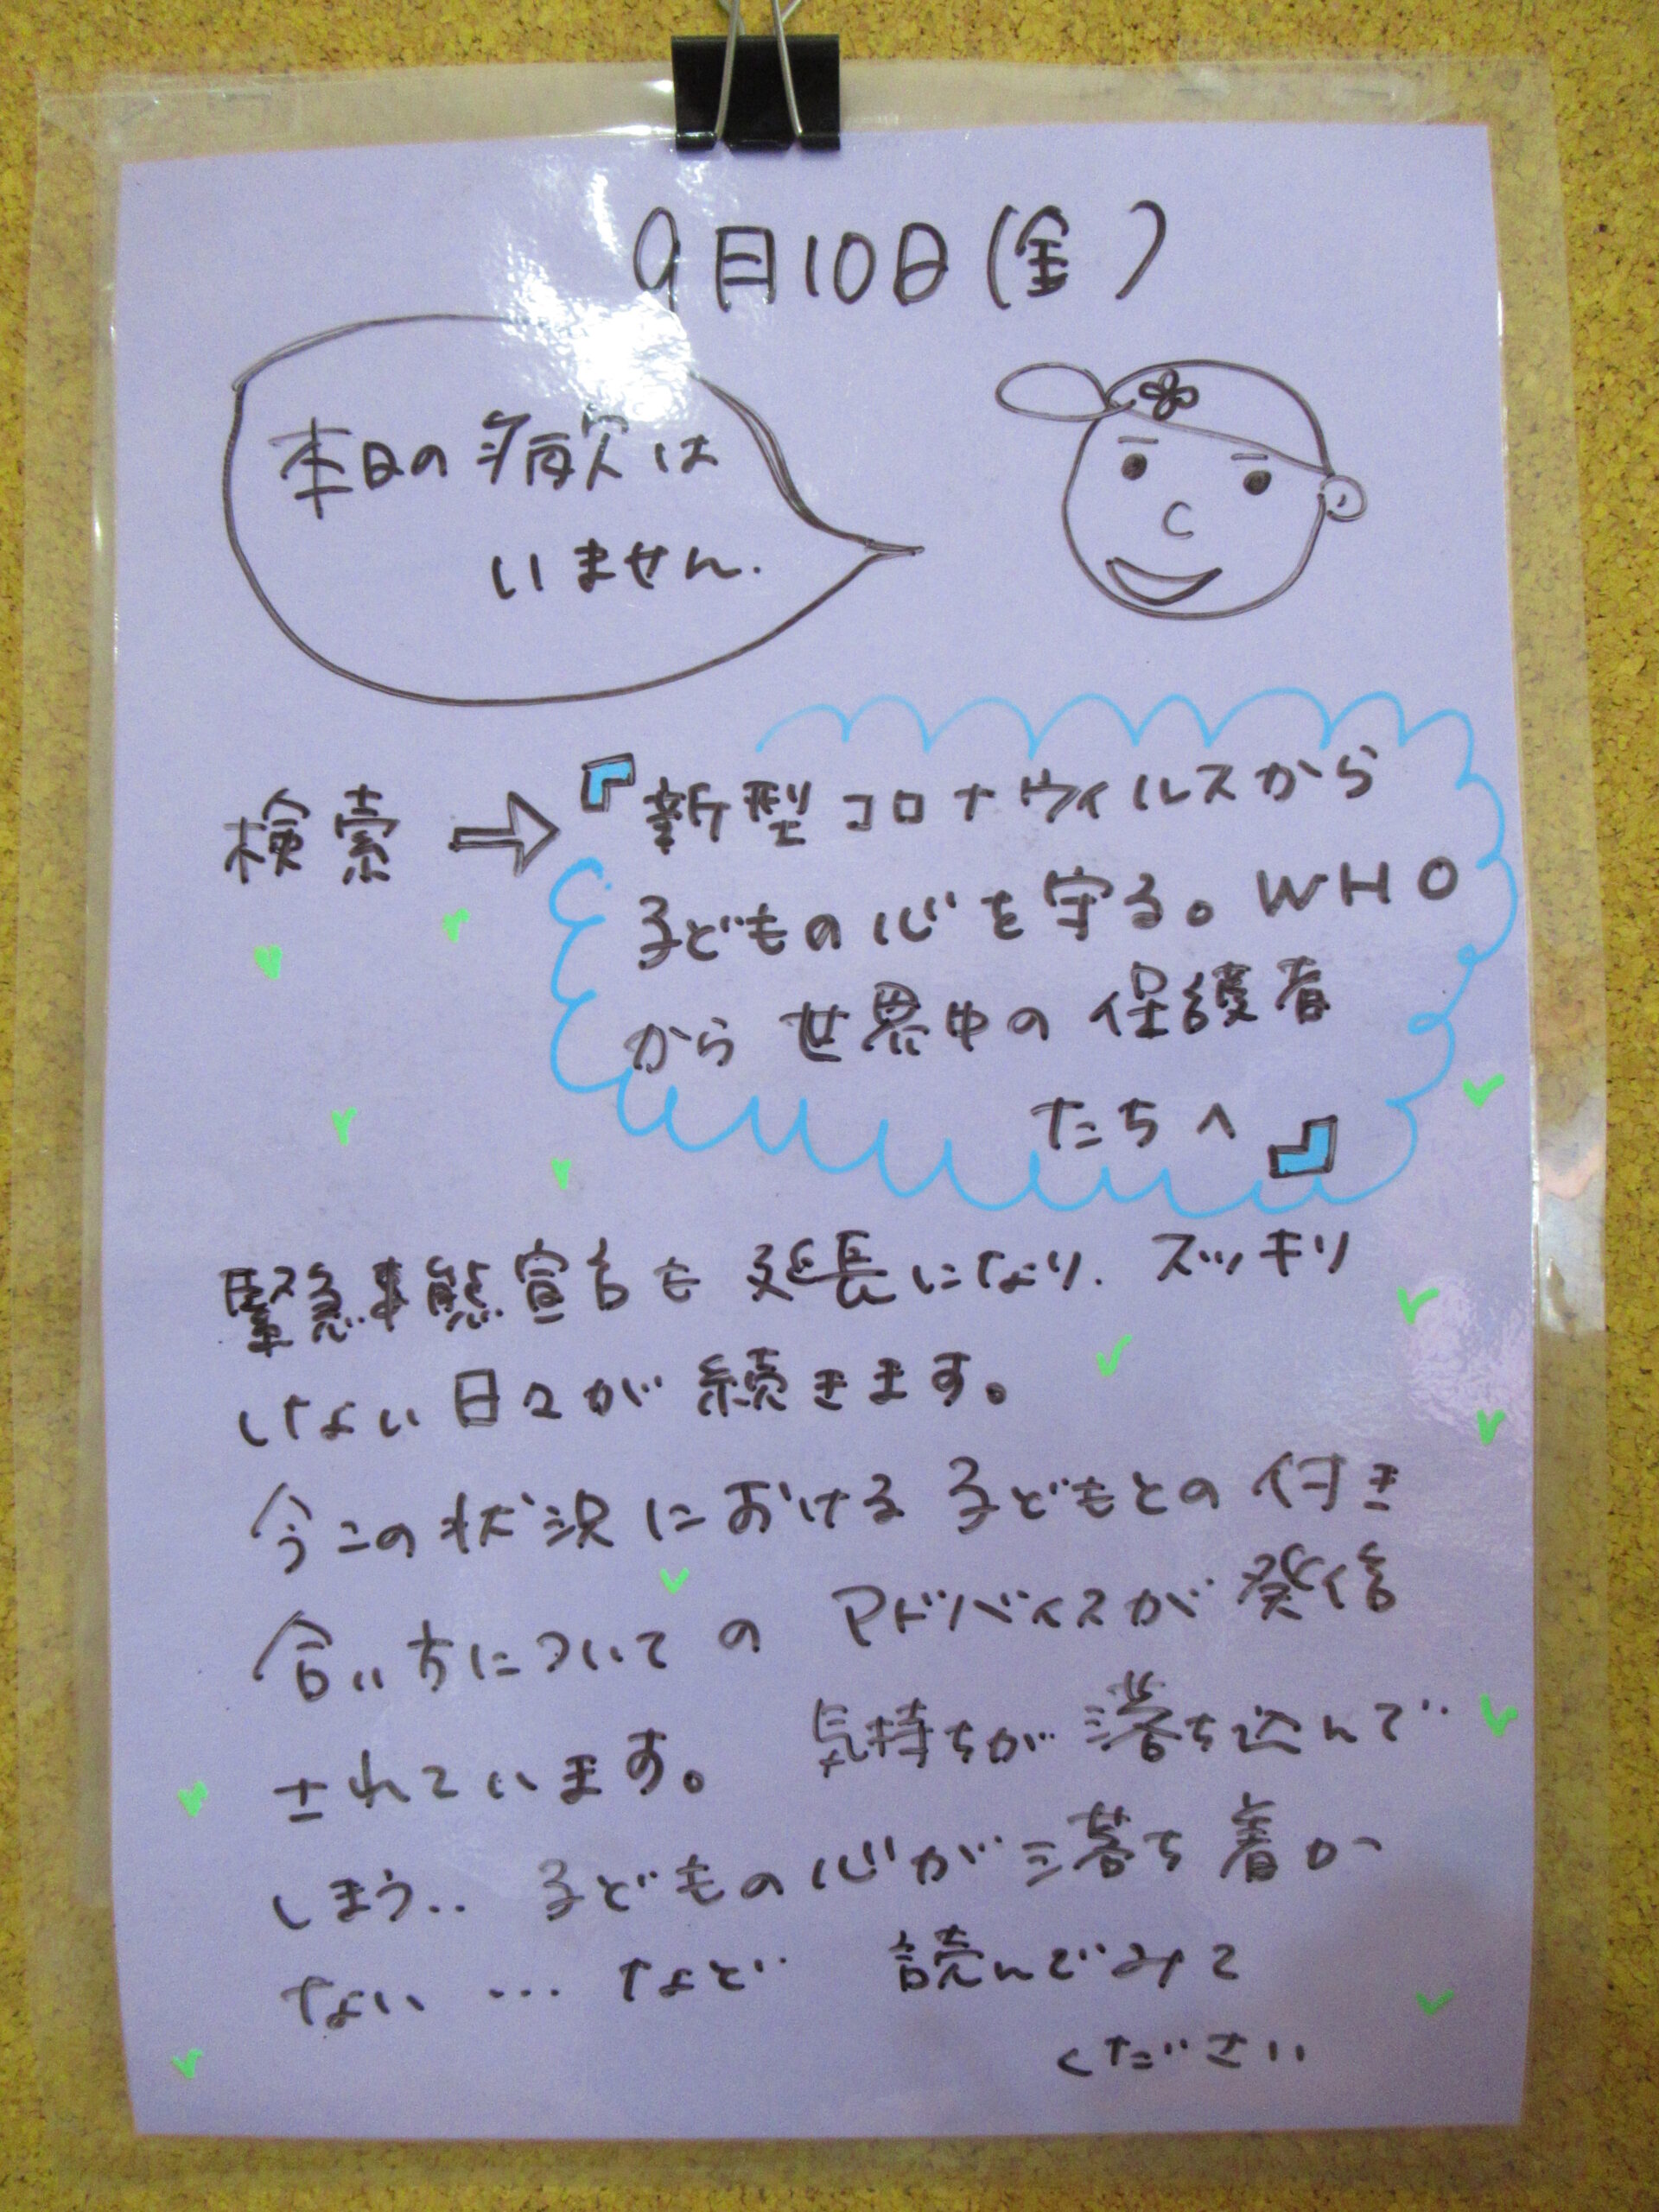 9月10日(金)
本日の病欠は
いません.
検索 ⇨ 『新型コロナウィルスから
子どもの心を守る。WHO
から世界中の保護者
たちへ』
緊急事態宣言も延長になり、スッキリ
しない日々が続きます。
今この状況における子どもとの付き
合い方についてのアドバイスが発信
されています。 気持ちが落ち込んで
しまう‥ 子どもの心が落ち着か
ない … など 読んでみて
ください